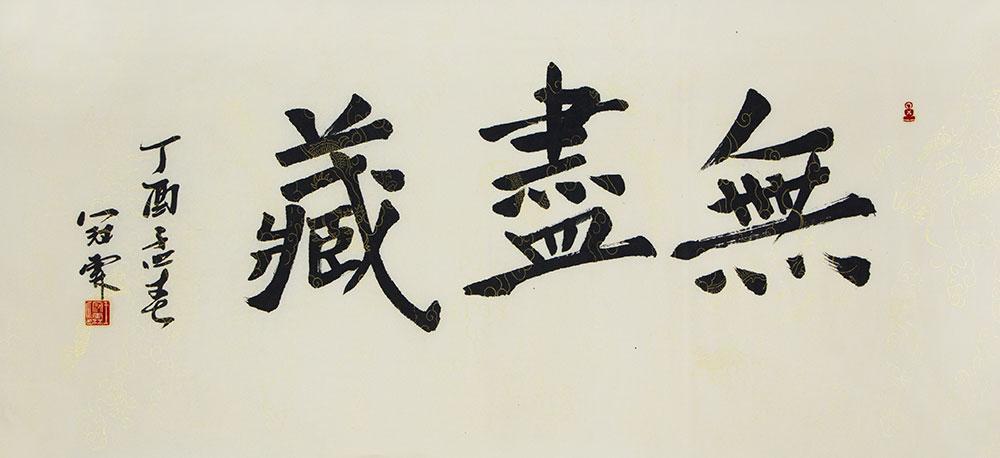 無盡藏
丁酉孟春